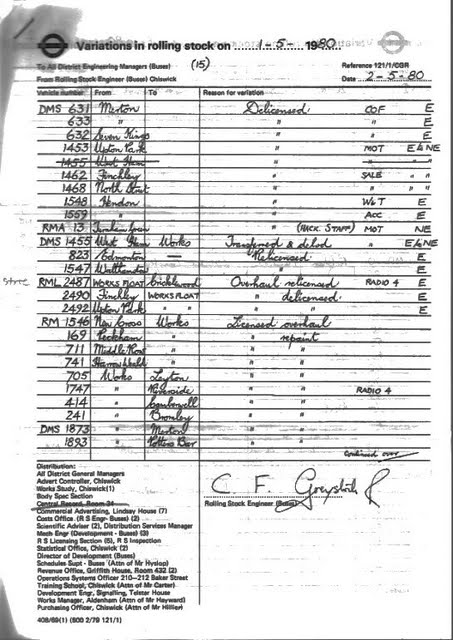 Variations in rolling stock on 1-5- 1980
(15)
To All District Engineering Managers (Buses)
Reference 121/1/CGR
From Rolling Stock Engineer (Buses) Chiswick
Date 2-5-80
Vehicle number From To Reason for variation
DMS 631 Merton Delicensed COF E
633 " " " E
632 Seven Kings " " E
1453 Upton Park " MOT E&NE
1455 West Ham " " "
1462 Finchley " SALE " "
1468 North Street " " " "
1548 Hendon " W&T E
1559 " " ACC E
RMA 13 Turnham Green " (HACK. STAFF) MOT NE
DMS 1455 West Ham Works Transferred & delcd " E&NE
823 Edmonton — Relicensed E
1547 Walthamstow " E
Store RML 2487 WORKS FLOAT Cricklewood Overhaul relicensed RADIO 4 E
2490 Finchley WORKS FLOAT " delicensed E
2492 Upton Park " " " " E
RM 1546 New Cross Works Licensed overhaul
169 Peckham " " repaint
711 Middle Row " " "
741 Harrow Weald " " "
705 Works Leyton " "
1747 " Riverside " " RADIO 4
414 " Camberwell " "
241 " Bromley " "
DMS 1873 " Merton " "
1893 " Potters Bar " "
Continued over
Distribution:
All District General Managers
Advert Controller, Chiswick
Works Study, Chiswick(1)
Body Spec Section
Central Record, Room 34
Commercial Advertising, Lindsay House (7)
Costs Office. (R S Engr- Buses) (2)
Scientific Adviser (2), Distribution Services Manager
Mech Engr (Development - Buses) (3)
R S Licensing Section (5), R S Inspection
Statistical Office, Chiswick (2)
Director of Development (Buses)
Schedules Supt - Buses (Attn of Mr Hyslop)
Revenue Office, Griffith House, Room 432 (2)
Operations Systems Officer 210—212 Baker Street
Training School, Chiswick (Attn of Mr Carter)
Development Engr, Signalling, Telster House
Works Manager, Aldenham (Attn of Mr Hayward)
Purchasing Officer, Chiswick (Attn of Mr Hillier)
C. F.
Rolling Stock Engineer (Buses)
408/69(1) (600 2/79 121/1)